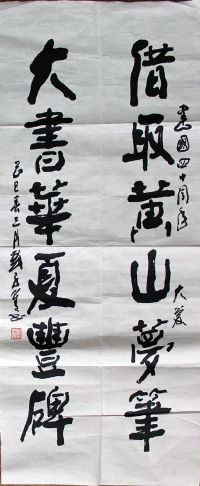 建國四十周年
借取黄山夢筆
大書華夏豐碑
己巳春三月